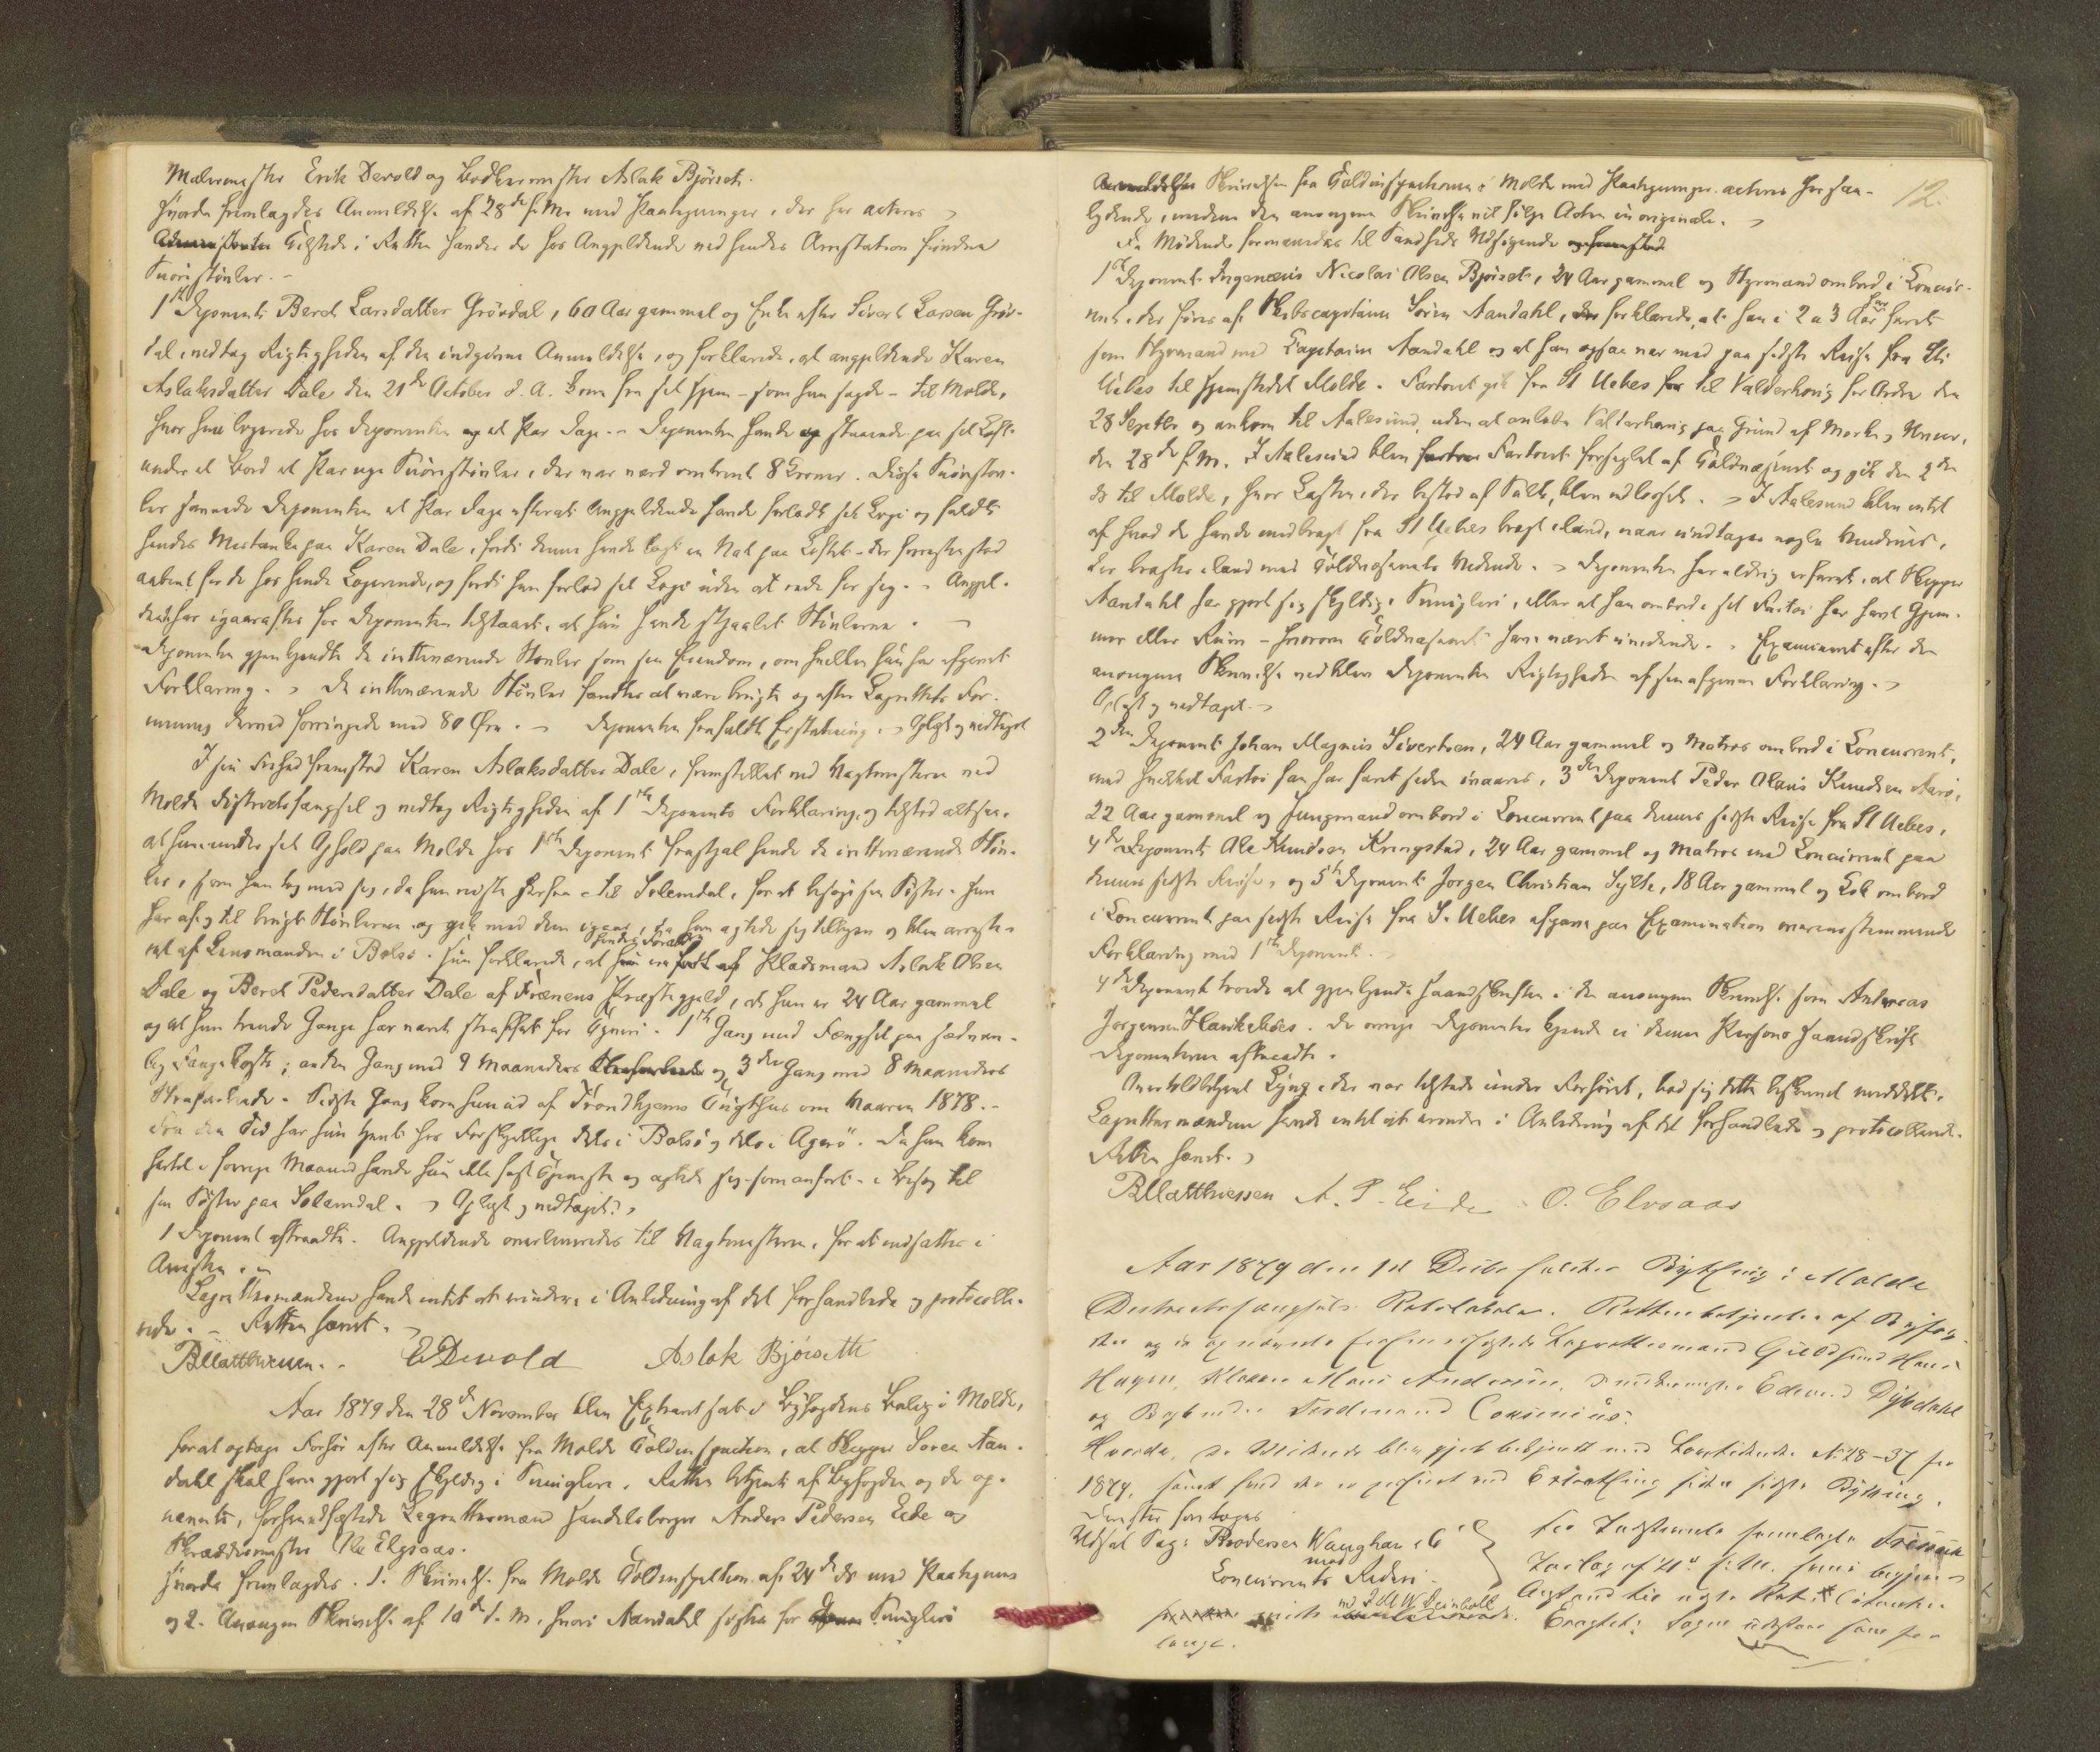 Malermester Erik Devold og Bødkermester Aslak Bjørset.
Hvorda fremlagdes Anmeldelse af 28de f. M. med Paategninger, der her acteres
Tilstede i Retten havdes de hos Angjeldende ved hendes Arrestation fundne
Snørestøvler. -
1ste Deponent Beret Larsdatter Grøvdal, 60 Aar gammel og Enke efter Sivert Larsen Grøv-
dal, vedtog Rigtigheden af den indgivne Anmeldelse, og forklarede, at angjeldende Karen
Aslaksdatter Dale den 21de October d. A. kom fra sit Hjem - som hun sagde - til Molde,
hvor hun logerede hos Deponenten et Par Dage. - Deponenten havde staaende paa sit Loft
under et Bord et Par nye Snørestøvler, der var værd omtrent 8 Kroner. Disse Snørestøv-
ler savnede Deponenten et Par Dage efterat Angjeldende havde forladt sit Logi og faldt
hendes Mistanke paa Karen Dale, fordi denne havde lagt en Nat paa Loftet - der forresten stod
aabent for de hos hende Logerende, og fordi hun forlod sit Logi uden at rede for sig. - Angjel-
dende har igaaraftes for Deponenten tilstaaet, at hun havde stjaalet Støvlerne. -
Deponenten gjenkjendte de iretteværende Støvler som sin Eiendom, om hvilken hun har afgivet
Forklaring. - De iretteværende Støvler fandtes at være brugte og efter Lagrettets For-
mening derved forringede med 80 Øre. - Deponenten frafaldt Erstatning. - Oplæst og vedtaget
I sin Frihed fremstod Karen Aslaksdatter Dale, fremstillet ved Vagtmesteren ved
Molde Distriktsfængsel og vedtog Rigtigheden af 1ste Deponents Forklaring, og tilstod altsaa,
at hun under sit Ophold paa Molde hos 1ste Deponent frastjal hende de iretteværende Støv-
ler, som hun tog med sig, da hun reiste herfra til Solemdal, for at besøge sin Søster. Hun
har af og til brugt Støvlerne og gik med dem igaar, da hun agtede sig tilbyen og blev arreste-
ret af Lensmanden i Bolsø. Hun forklarede, at hendes Forældre er Pladsmand Aslak Olsen
Dale og Beret Pedersdatter Dale af Frænens Præstegjeld, at hun er 24 Aar gammel
og at hun trende Gange har været straffet for Tyveri. 1ste Gang med Fængsel paa sædvan-
lig Fangekost; anden Gang med 9 Maaneders og 3die Gang med 8 Maaneders
Strafarbeide. Sidste Gang kom hun ud af Trondhjems Tugthus om Vaaren 1878. -
Fra den Tid har hun tjent hos Forskjellige dels i Bolsø og dels i Agerø. Da hun kom
hertil i forrige Maaned havde hun ikke fast Tjeneste og agtede sig - som anført - i Besøg til
sin Søster paa Solemdal. - Oplæst og vedtaget. -
1 Deponent aftraadte. Angjeldende overleveredes til Vagtmesteren, for at indsættes i
Arresten. -
Lagrettesmændene havde intet at erindre i Anledning af det forhandlede og protocolle-
rede. - Retten hævet. -
BMatthiessen. - EDevold Aslak Bjørseth
Aar 1879 den 28de November blev Extraret sat i Byfogdens Bolig i Molde,
for at optage Forhør efter Anmeldelse fra Molde Toldinspection, at Skipper Søren Aan-
dahl skal have gjort sig skyldig i Smugleri. Retten betjent af Byfogden og de op-
nævnte, forhendsfæstede Lagrettesmænd Handelsborger Anders Pedersen Eide og
Skræddermester Ole Elgsaas.
Hvorda fremlagdes. 1. Skrivelse fra Molde Toldinspektion af 24de ds med Paategning
og 2. Anonym Skrivelse af 10de d. M. hvori Aandahl sigtes for Smugleri
12.
Skrivelsen fra Toldinspectionen i Molde med Paategninger acteres her saa-
lydende, medens den anonyme Skrivelse vil følge Acten in originale. -
De Mødende formanedes til Sandheds Udsigende
1ste Deponent Ingenæus Nicolai Olsen Bjørset, 24 Aar gammel og Styrmand ombord i Concur-
rent, der føres af Skibscapitaine Søren Aandahl, forklarede, at han i 2 a 3 Aar har faret
som Styrmand med Capitaine Aandahl og at han ogsaa var med paa sidste Reise fra St
Uebes til Hjemstedet Molde. Fartøiet gik fra St Uebes til Valderhoug for Ordre den
28 Septbr og ankom til Aalesund, uden at anløbe Valderhoug paa Grund af Mørke og Uveir,
den 28de f. M. I Aalesund blev Fartøiet forseglet af Toldvæsenet og gik den 2den
ds til Molde, hvor Lasten, der bestod af Salt, blev udlosset. - I Aalesund blev intet
af hvad de havde medbragt fra St Uebes bragt iland, naar undtages nogle Vinduer,
der bragtes iland med Toldvæsenets Vidende. - Deponenten har aldrig erfaret, at Skipper
Aandahl har gjort sig skyldig i Smugleri, eller at han ombord i sit Fartøi har havt Gjem-
mer eller Rum - hvorom Toldvæsenet har været uvidende. - Examineret efter den
anonyme Skrivelse vedblev Deponenten Rigtigheden af sin afgivne Forklaring. -
Oplæst og vedtaget. -
2den Deponent Johan Magnus Sivertsen, 24 Aar gammel og Matros ombord i Concurrent,
med hvilket Fartøi han har faret siden ivaares, 3die Deponent Peder Olaus Knudsen Aarø,
22 Aar gammel og Jungmand ombord i Concurrent paa dennes sidste Reise fra St Uebes,
4de Deponent Ole Knudsen Kringstad, 24 Aar gammel og Matros med Concurrent paa
dennes sidste Reise, og 5te Deponent Jørgen Christian Sylte, 18 Aar gammel og Kok ombord
i Concurrent paa sidste Reise fra St. Uebes afgave paa Examination overensstemmende
Forklaring med 1ste Deponent. -
4de Deponent troede at gjenkjende Haandskriften i den anonyme Skrivelse som Andreas
Jørgensen Haukebøes. De øvrige Deponenter kjende ei denne Persons Haandskrift
Deponenterne aftraadte.
Overtoldbetjent Lyng, der var tilstede under Forhøret, bad sig dette beskrevet meddelt.
Lagrettesmændene havde intet at erindre i Anledning af det forhandlede og protocollerede.
Retten hævet. -
BMatthiessen A. P. Eide O. Elvsaas
Aar 1879 den 1st Decbr holdtes Bything i Molde
Districtsfængsels Retslokale. Retten betjentes af Byfog-
den og de opnævnte Lagrettesmænd Guldsmed Hans
Hagen, Klokker Mons Andersen, Edvard Dybdahl
og Bogbinder Ferdinand Consenius.
Hvorda, blev betjent med Kundgjørelse N: 28-37 for
1879, samt hvad der er passeret ved Extrathing siden sidste Bything.
Dernæst foretoges
Udsat Sag: Brødrene Vaughan & C
mod
Concurrents Rederi
For Indstevnte fremlagde
Indlæg af 21de f. M. hvori begjæres
Eragtet: Sagen udstaar saa
længe.